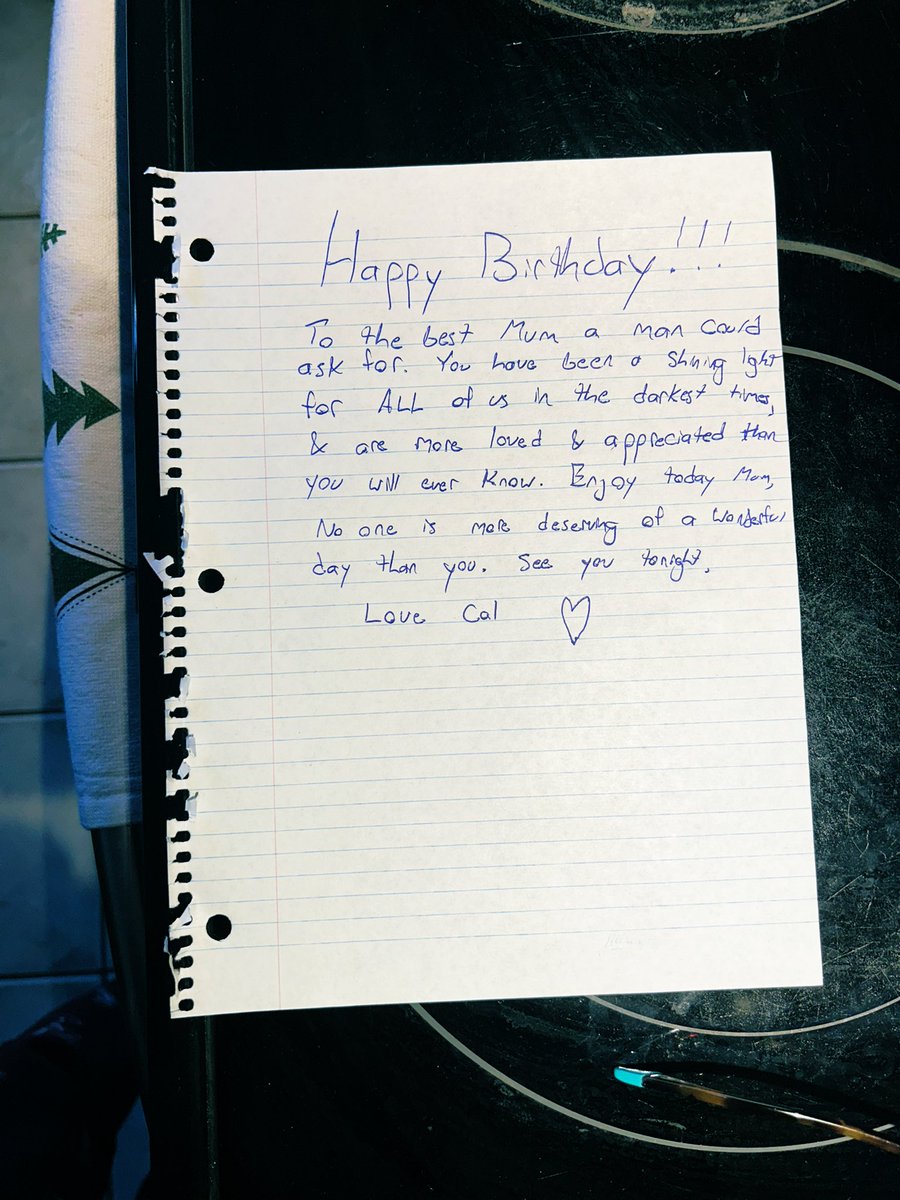 Happy Birthday!!!
To the best Mum a man could
ask for. You have been a shining light
for ALL of us in the darkest times,
& are more loved & appreciated than
you will ever know. Enjoy today Mum,
No one is more deserving of a wonderful
day than you. See you tonight.
Love Cal